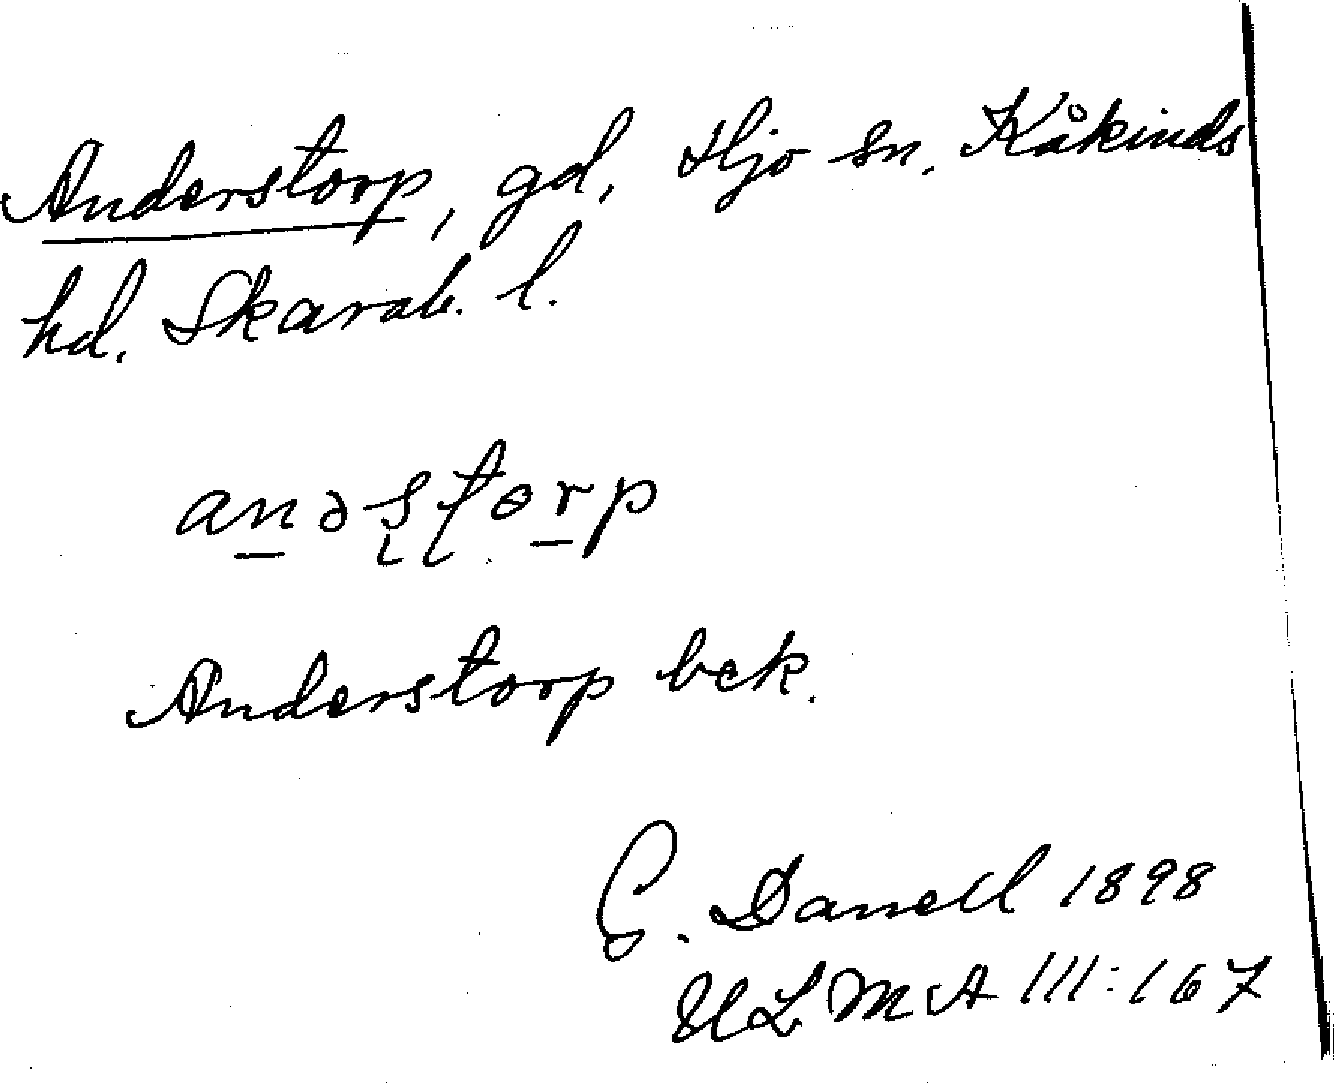 Anderstorp, gd, Hjo sn. Kåkinds
hd. Skarab. l.
anəʂʈɵrp
Anderstorp bek.
G. Danell 1898
ULMA III:167